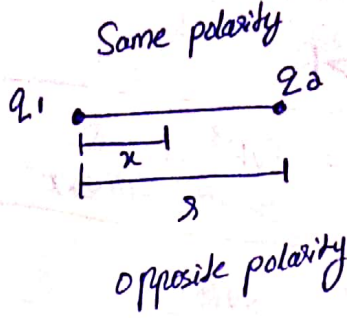 Same polarity
q1 q2
x
r
opposite polarity